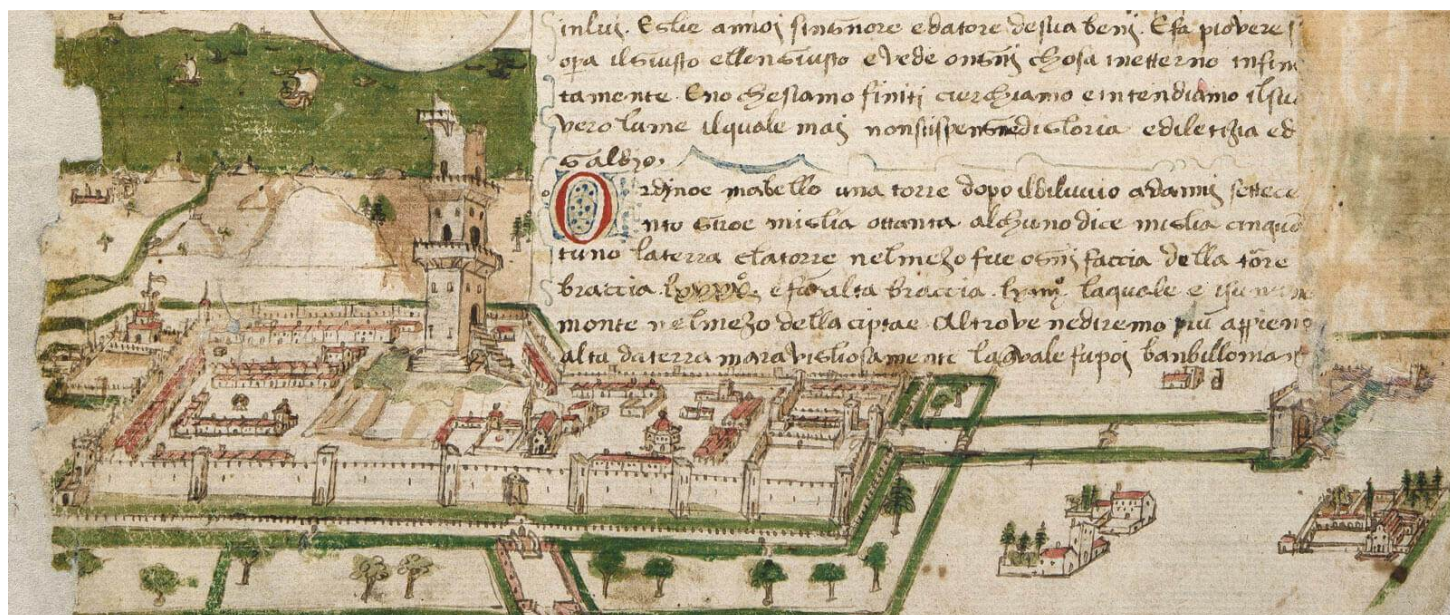 inlui. Eglie annoj singnore e datore de sua benj. E fa piovere
opra ilgiusto ellengiusto e vede ongnj chosa inetterno infini
tamente. E no che siamo finiti cierchiamo e intendiamo il suo
vero lume il quale maj non si spengne di gloria e diletizia ed
galdio.
Ordinoe mabello una torre dopo ildiluvio adannj settece
nto giroe miglia ottanta alchuno dice miglia cinqua
tuno la terra ella torre nel mezo fue ognj faccia della tore
braccia e fu alta braccia laquale e
monte nelmezo della ciptae Altrove nediremo piu appieno
alta da terra maravigliosamente la quale fu poi banbillonia